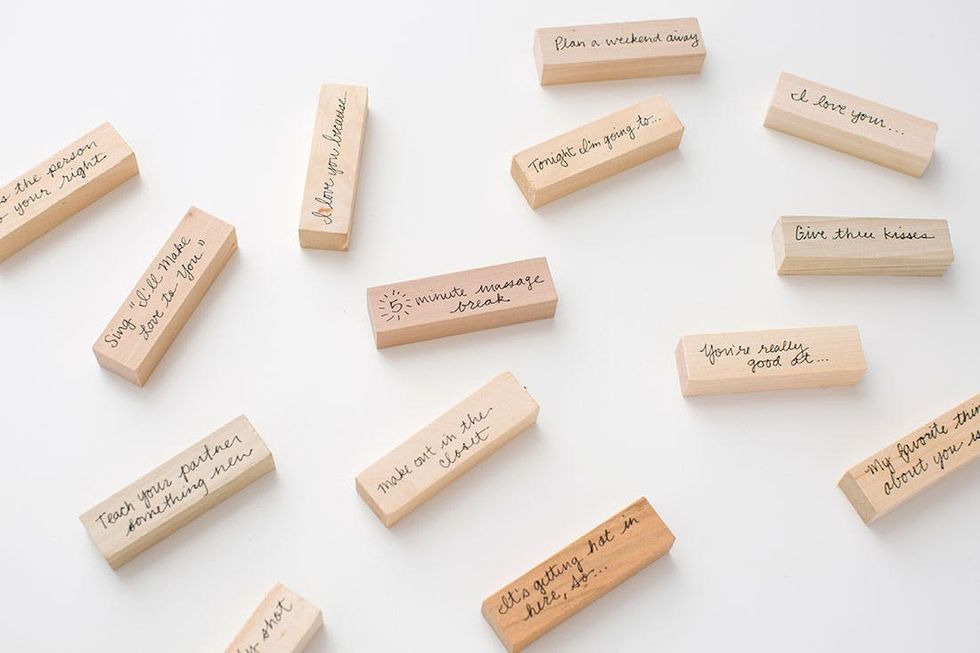 Plan a weekend away
I love your...
Tonight I'm going to...
I love you because...
the person
your right
Give three kisses
Sing "I'll Make
Love to You"
5 minute massage
break
You're really
good at...
My favorite
about you is
make out in the
closet
Teach your partner
something new
It's getting hot in
here, so...
shot